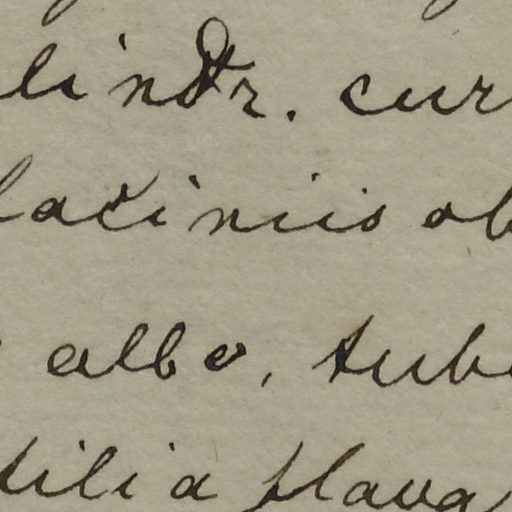 lindr. cur
laciniis ob
albo, tub
tilia flava